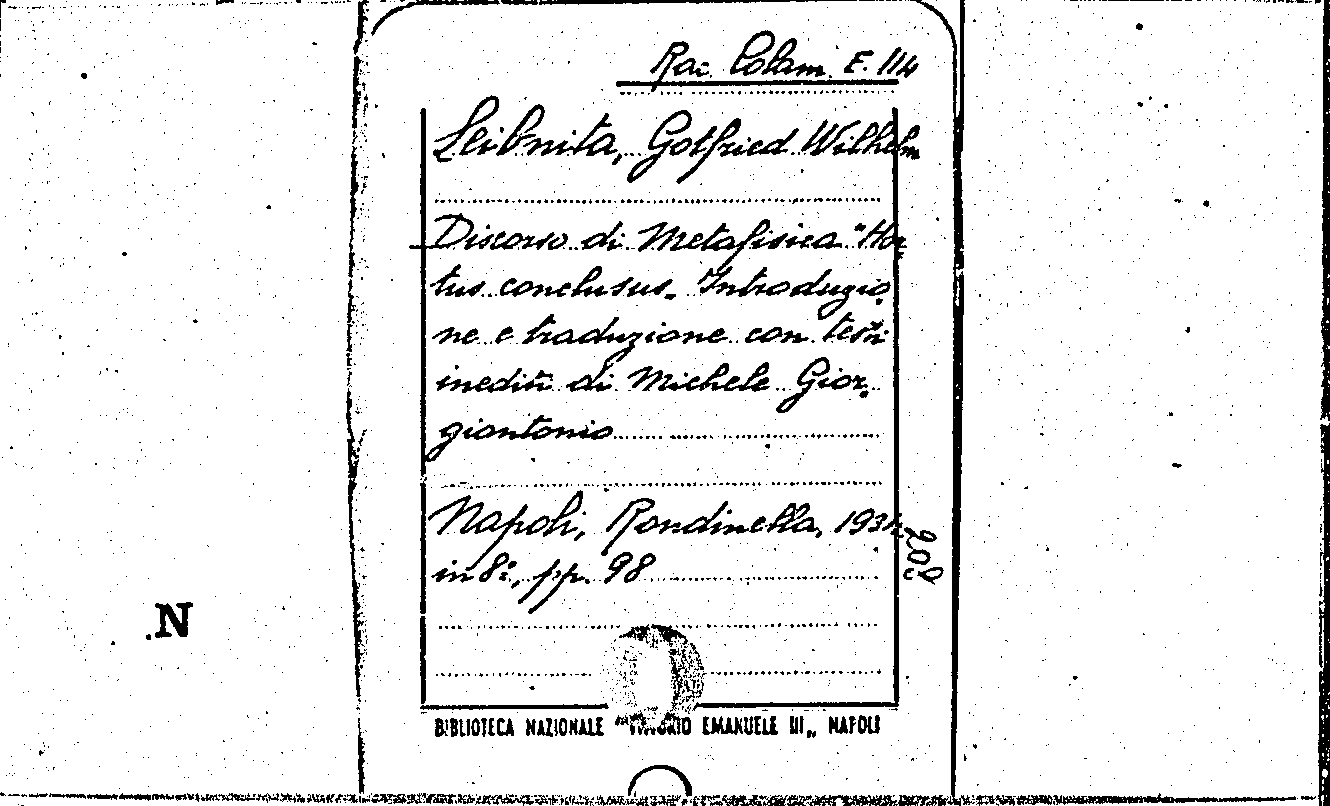 Rac. Colam. E. 114
Leibnita, Gotfried Wilhelm
Discorso di Metafisica "Hor-
tus conclusus. Introduzio-
ne e traduzione con testi
inediti di Michele Gior-
giantonio
Napoli, Rondinella, 1934
in 8º, pp. 98
N
BIBLIOTECA NAZIONALE "VITTORIO EMANUELE III„ NAPOLI